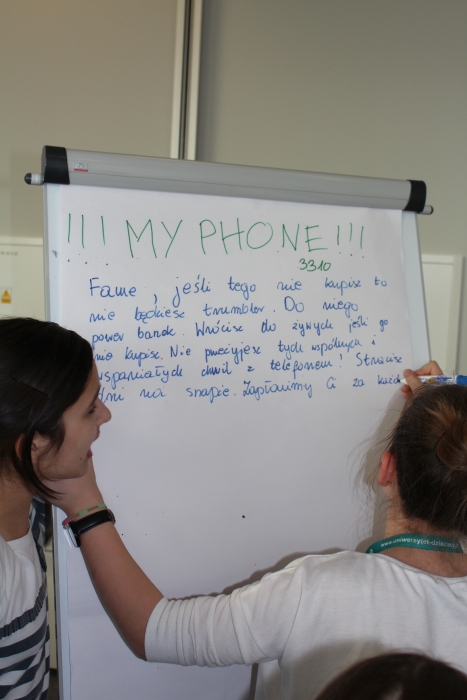 !!! MY PHONE !!!
3310
Fame, jeśli tego nie kupisz to
nie będziesz trumblor. Do niego
power banok. Wrócisz do żywych jeśli go
nie kupisz. Nie przeżyjesz tych wspólnych i
wspaniałych chwil z telefonem! Stracisz
dni na snapie. Zapłacimy Ci za każd
www.uniwersytet-dzieciecy